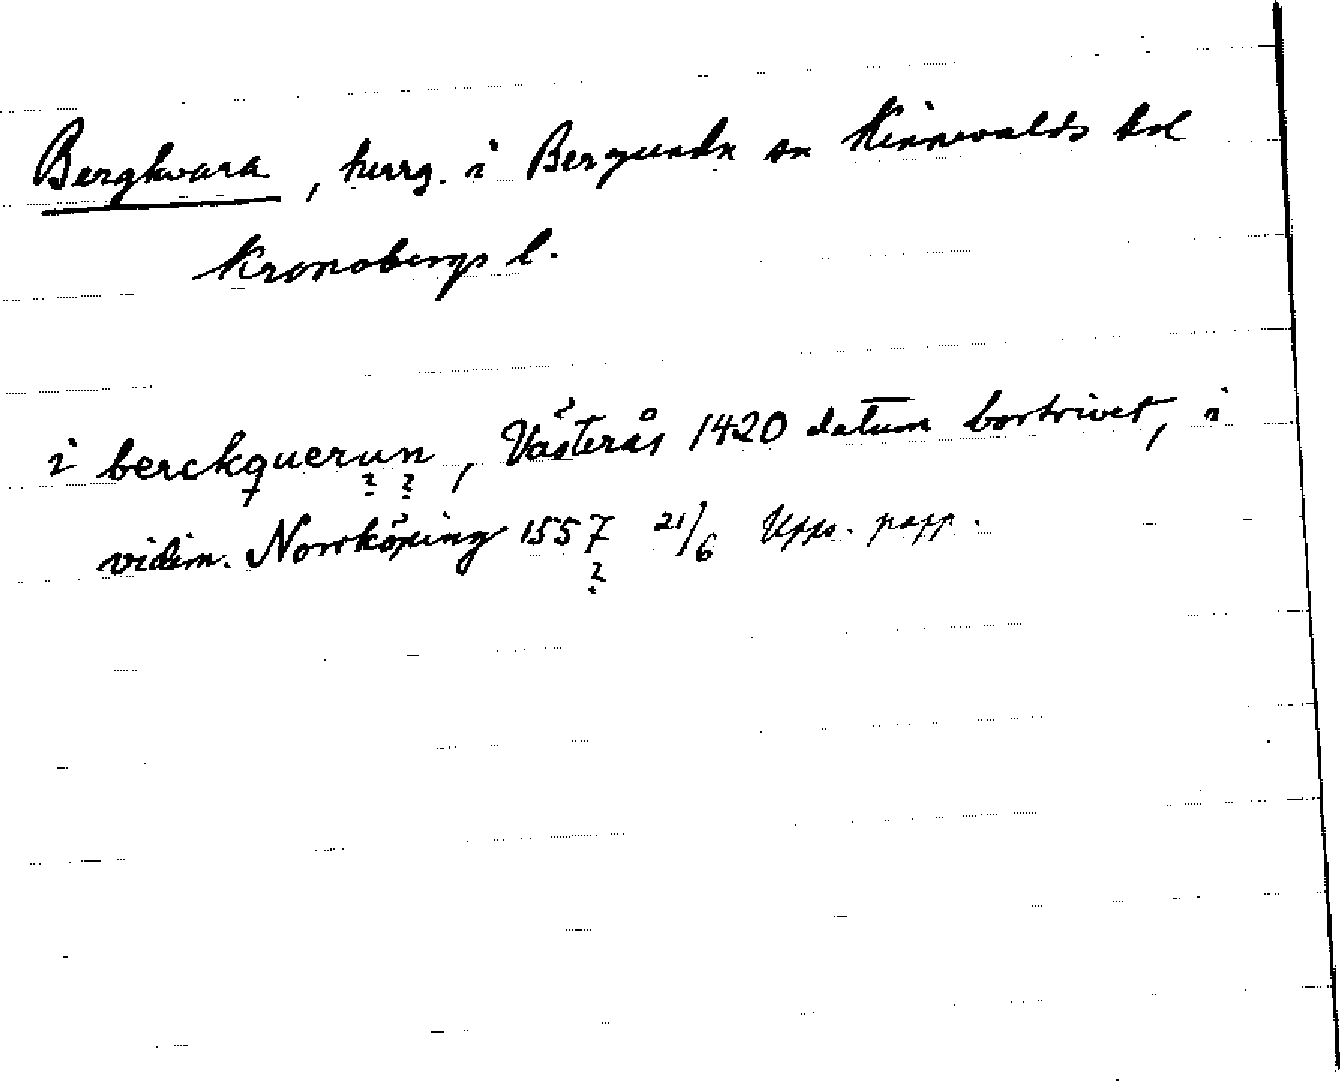 Bergkvara, herrg. i Bergunda sn Kinnevalds hd
Kronobergs l.
i berckquerun, Västerås 1420 datum bortrivet, i
? ?
vidim. Norrköping 1557 21/6 Upps. papp.
?